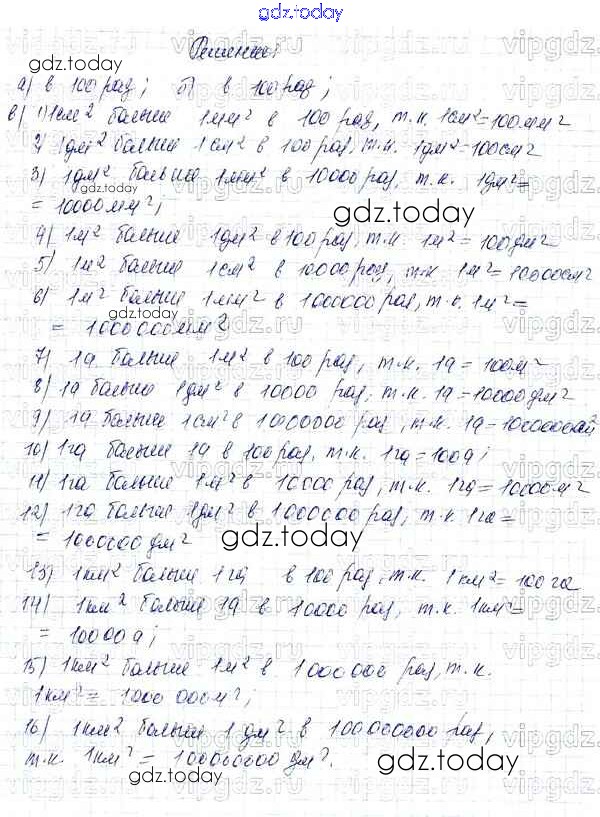 gdz.today
Решение:
gdz.today
а) в 100 раз; б) в 100 раз;
в) 1) 1см² больше 1мм² в 100 раз, т.к. 1см²=100мм²
2) 1дм² больше 1см² в 100 раз, т.к. 1дм²=100см²
3) 1дм² больше 1мм² в 10000 раз, т.к. 1дм²=
gdz.today
= 10000мм²;
gdz.today
4) 1м² больше 1дм² в 100 раз, т.к. 1м²=100дм²
5) 1м² больше 1см² в 10000 раз, т.к. 1м²=10000см²
6) 1м² больше 1мм² в 1000000 раз, т.к. 1м²=
= 1000000мм²
vipgdz.ru
7) 1а больше 1м² в 100 раз, т.к. 1а = 100м²
8) 1а больше 1дм² в 10000 раз, т.к. 1а=10000дм²
9) 1а больше 1см² в 1000000 раз, т.к. 1а=
10) 1га больше 1а в 100 раз, т.к. 1га=100а;
11) 1га больше 1м² в 10000 раз, т.к. 1га=10000м²
12) 1га больше 1дм² в 1000000 раз, т.к. 1га=
= 1000000дм²
gdz.today
13) 1км² больше 1га в 100 раз, т.к. 1км²=100га
14) 1км² больше 1а в 10000 раз, т.к. 1км²=
= 10000а;
15) 1км² больше 1м² в 1000000 раз, т.к.
1км²= 1000 000м²;
16) 1км² больше 1дм² в 100000000 раз,
т.к. 1км² = 100000000дм².
gdz.today
gdz.today